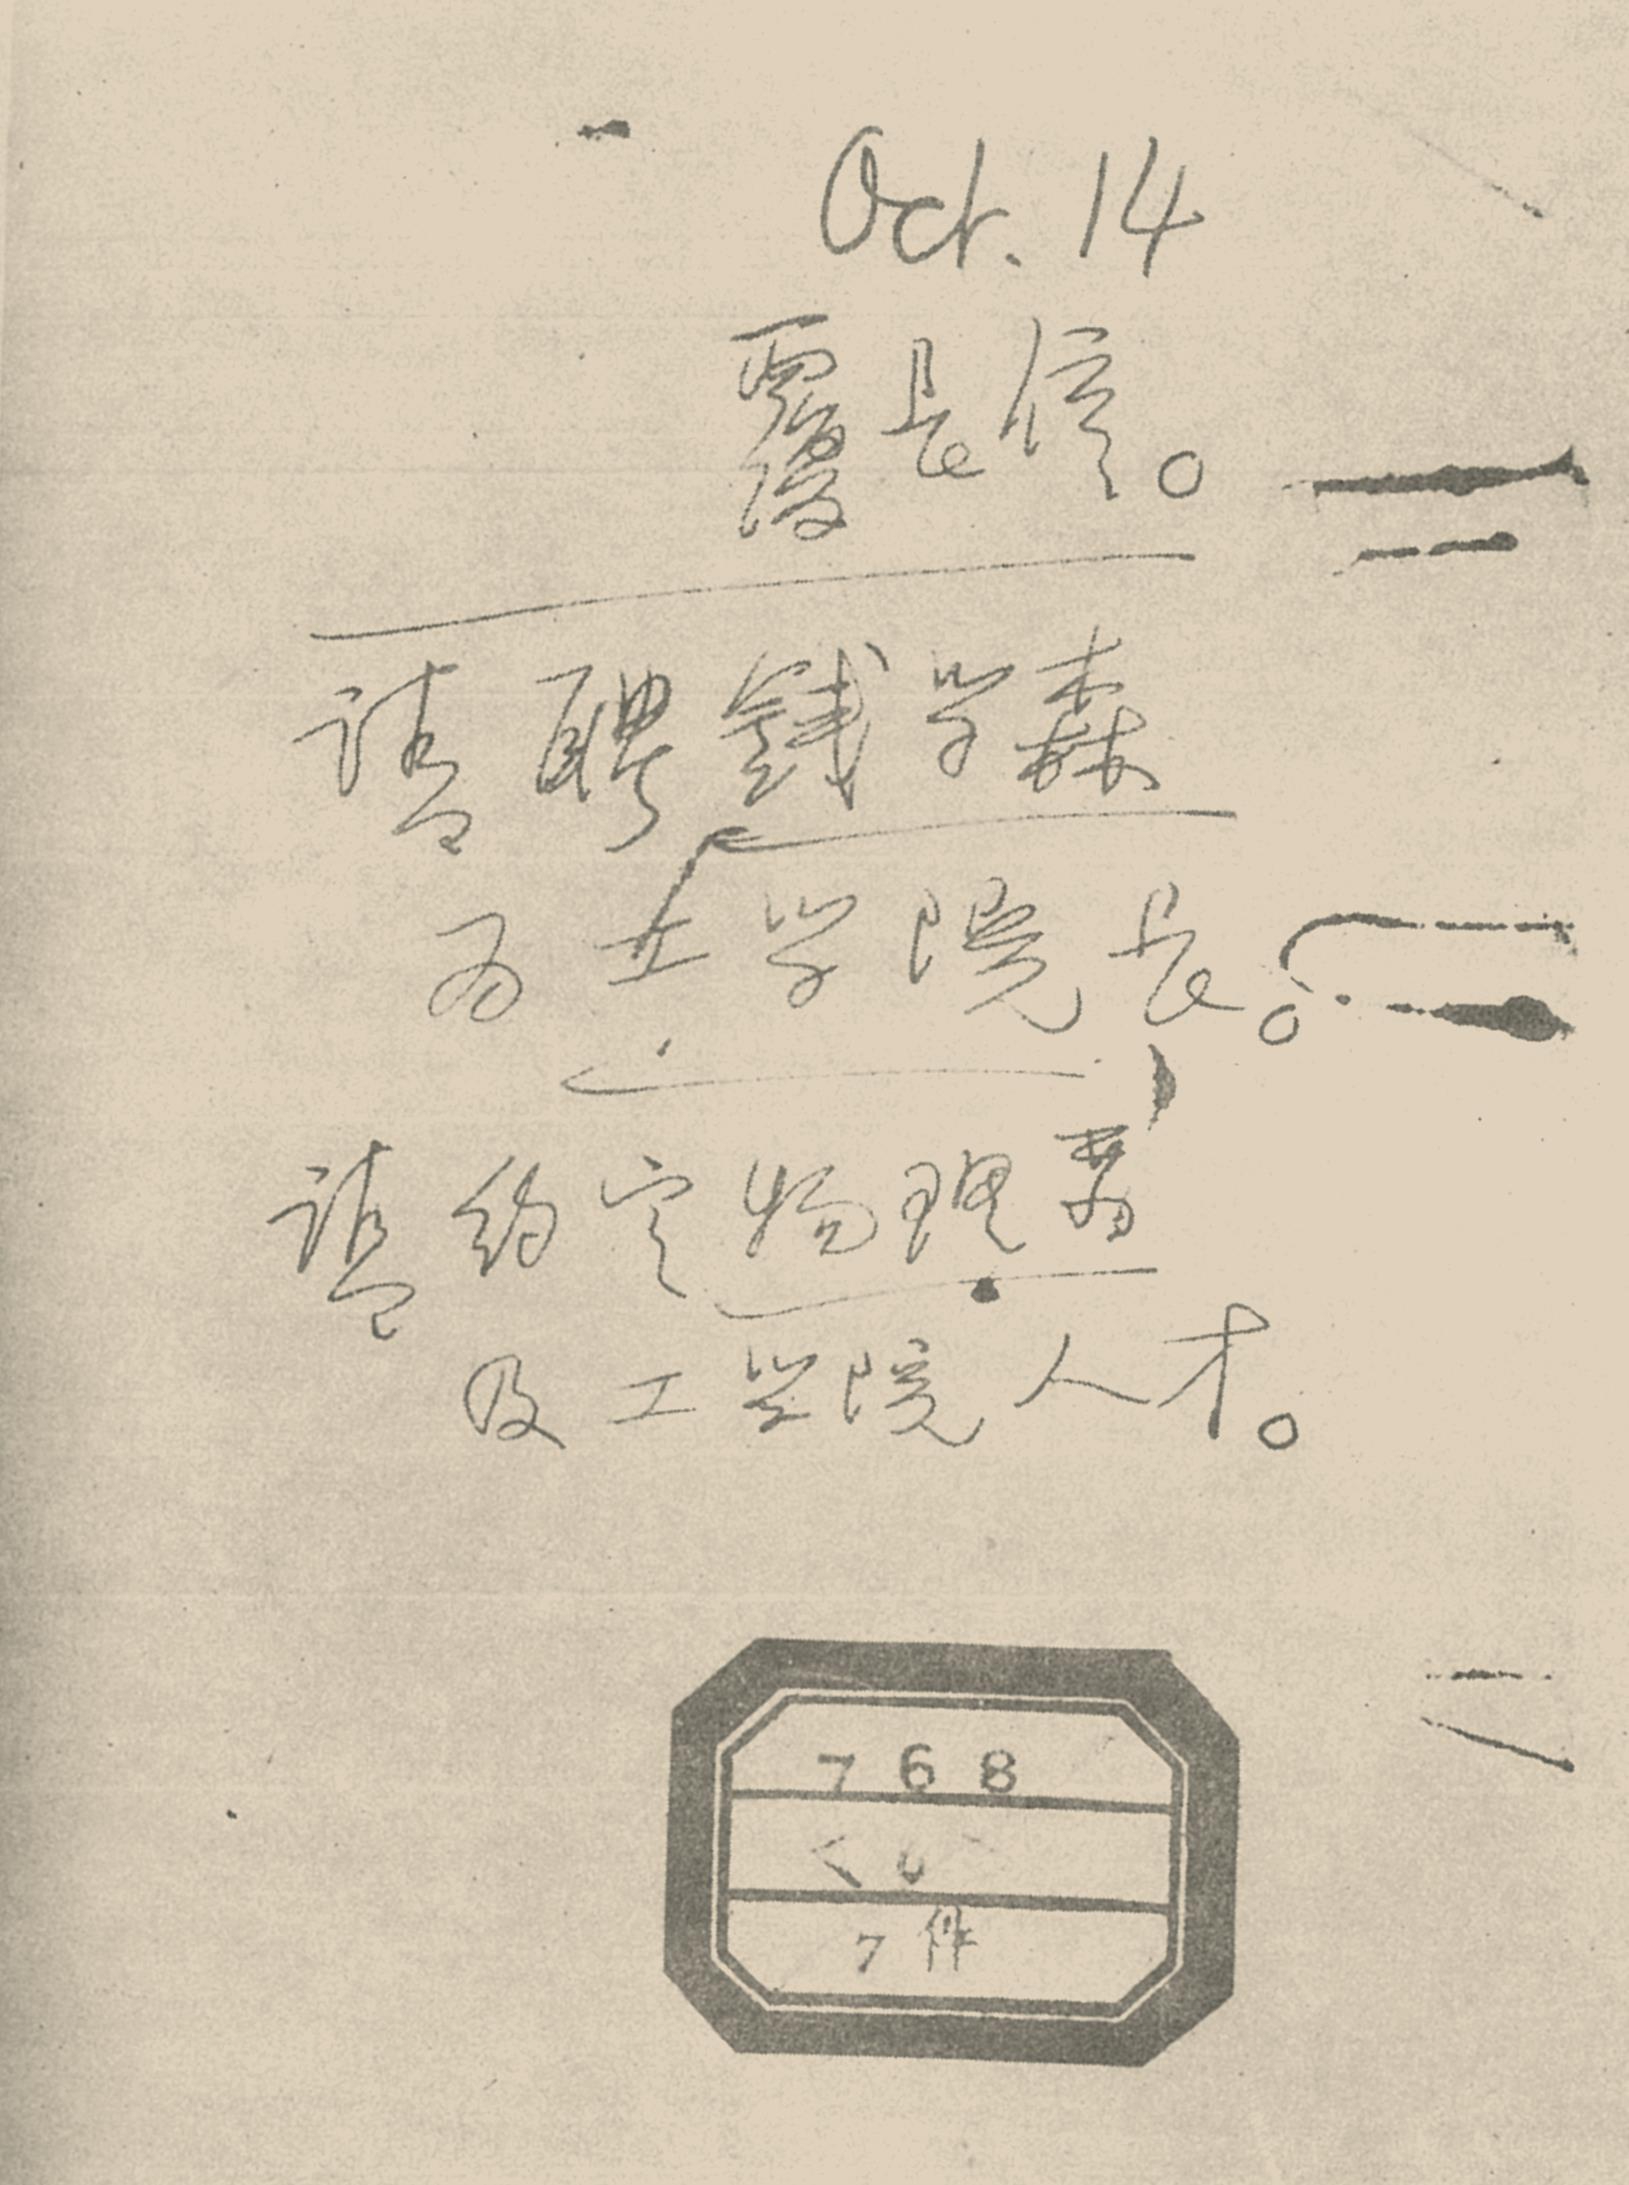 Oct. 14
覆長信。
請聘錢学森
为工学院長。
請約定物理
及工学院人才。
768
7件